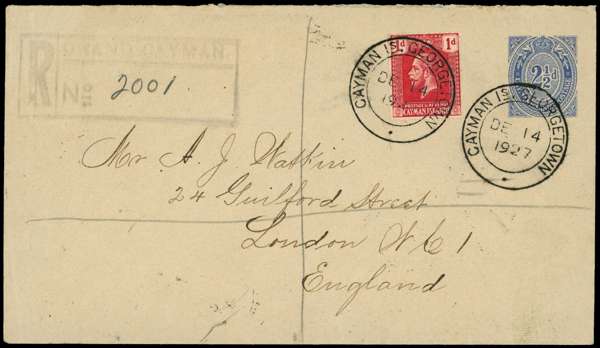 GRAND CAYMAN.
R
No
2001
1d
POSTAGE & REVENUE
CAYMAN ISLANDS
CAYMAN IS. GEORGETOWN
DE 14
1927
2½d
CAYMAN IS. GEORGETOWN
DE 14
1927
Mr A. J. Watkin
24 Guilford Street
London W C 1
England